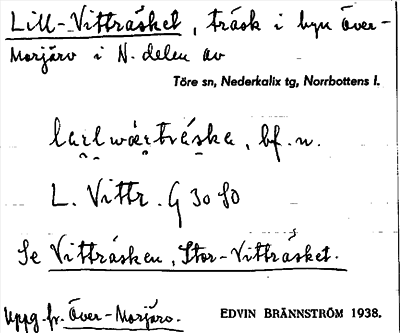 Lill-Vitträsket, träsk i byn Över-
Morjärv i N. delen av
Töre sn, Nederkalix tg, Norrbottens l.
bf. n.
L. Vittr. G 30 S0
Se Vitträsken, Stor-Vitträsket.
Uppg. fr. Över-Morjärv.
EDVIN BRÄNNSTRÖM 1938.